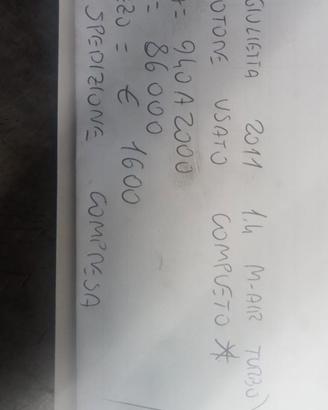 GIULIETTA 2011 1.4 M-AIR TURBO)
OTORE USATO COMPLETO *
= 940A2000
= 86000
ZZO = € 1600
SPEDIZIONE COMPRESA